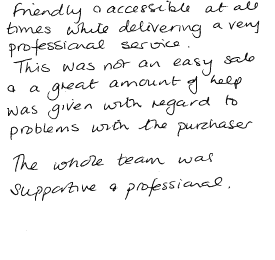 Friendly & accessible at all
times while delivering a very
professional service.
This was not an easy sale
& a great amount of help
was given with regard to
problems with the purchaser
The whole team was
supportive & professional.